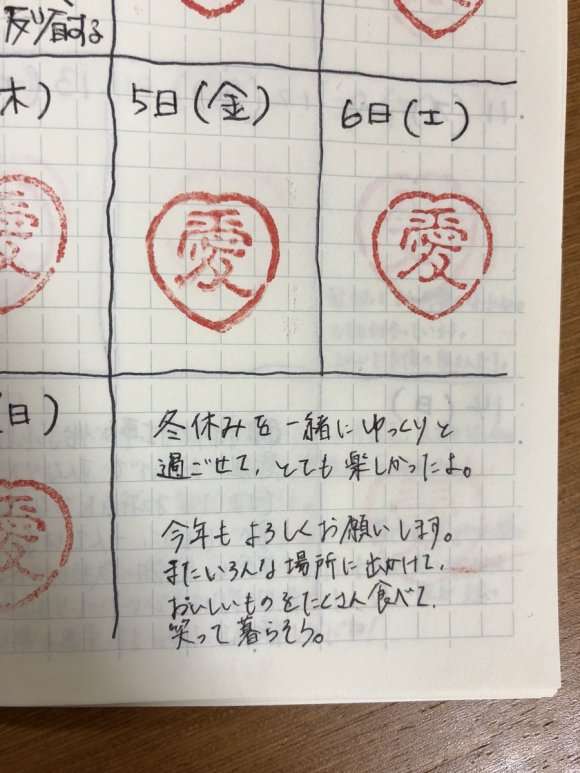 反り省する
木)
5日(金)
6日(土)
愛
愛
愛
(日)
愛
冬休みを一緒にゆっくりと
過ごせて、とても楽しかったよ。
今年もよろしくお願いします。
またいろんな場所に出かけて、
おいしいものをたくさん食べて、
笑って暮らそう。